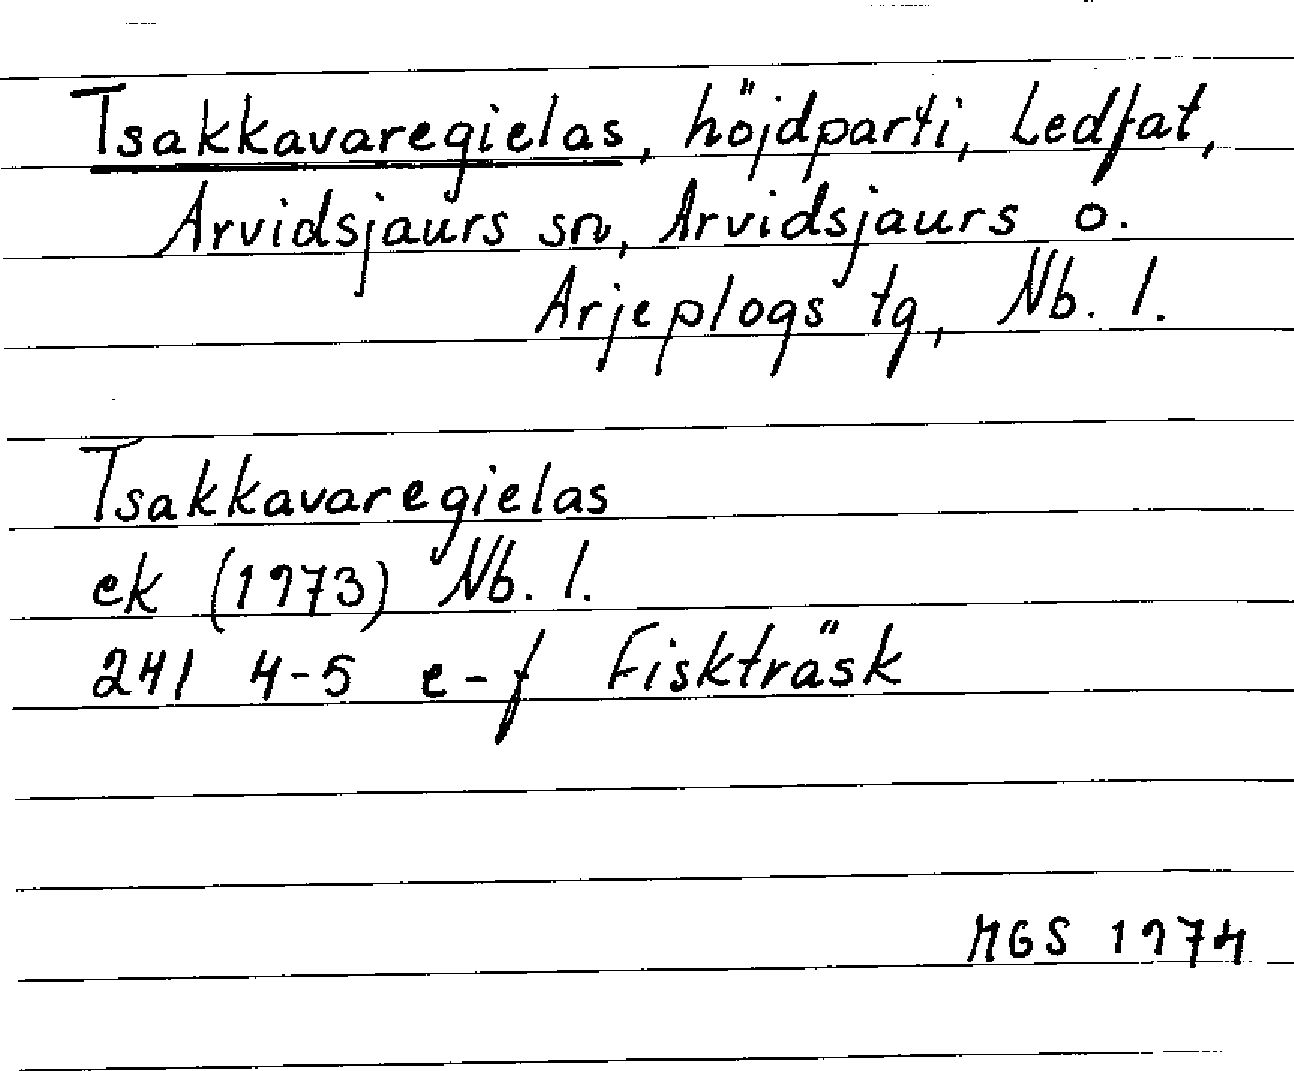 Tsakkavaregielas, höjdparti, Ledfat,
Arvidsjaurs sn, Arvidsjaurs o.
Arjeplogs tg, Nb. l.
Tsakkavaregielas
ek (1973) Nb. l.
24I 4-5 e-f Fiskträsk
MGS 1974